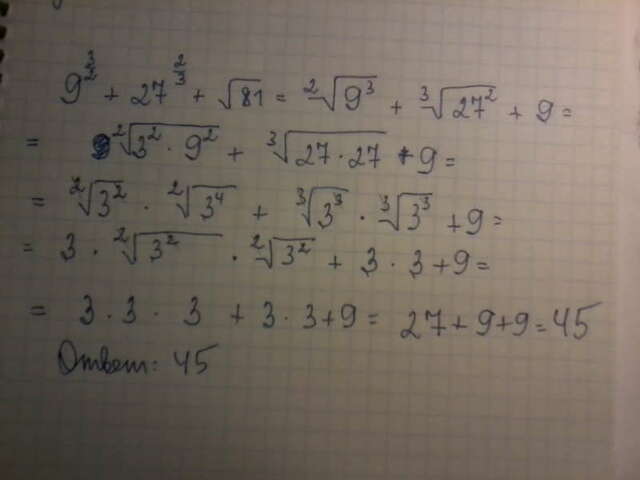 9^{3/2} + 27^{2/3} + √81 = ²√9³ + ³√27² + 9 =
= ²√3² · 9² + ³√27 · 27 + 9 =
= ²√3² · ²√3⁴ + ³√3³ · ³√3³ + 9 =
= 3 · ²√3² · ²√3² + 3 · 3 + 9 =
= 3 · 3 · 3 + 3 · 3 + 9 = 27 + 9 + 9 = 45
Ответ: 45